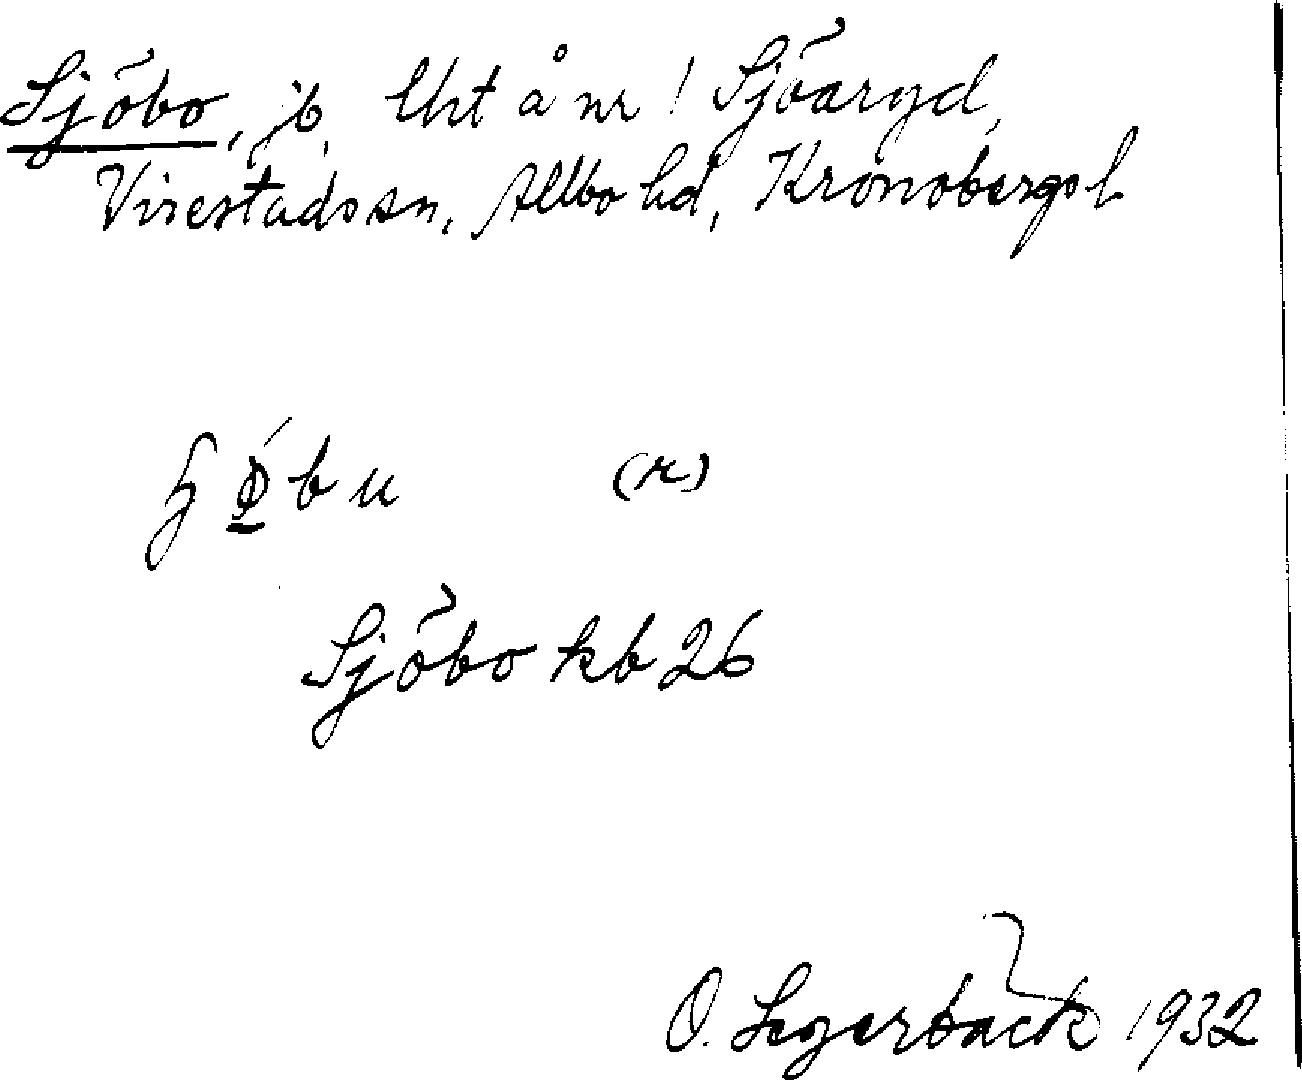 Sjöbo, jb, Utrt å nr 1 Sjöaryd,
Virestads sn, Allbo hd, Kronobergs l
bu (r)
Sjöbo kb 26
O. Segerbäck 1932